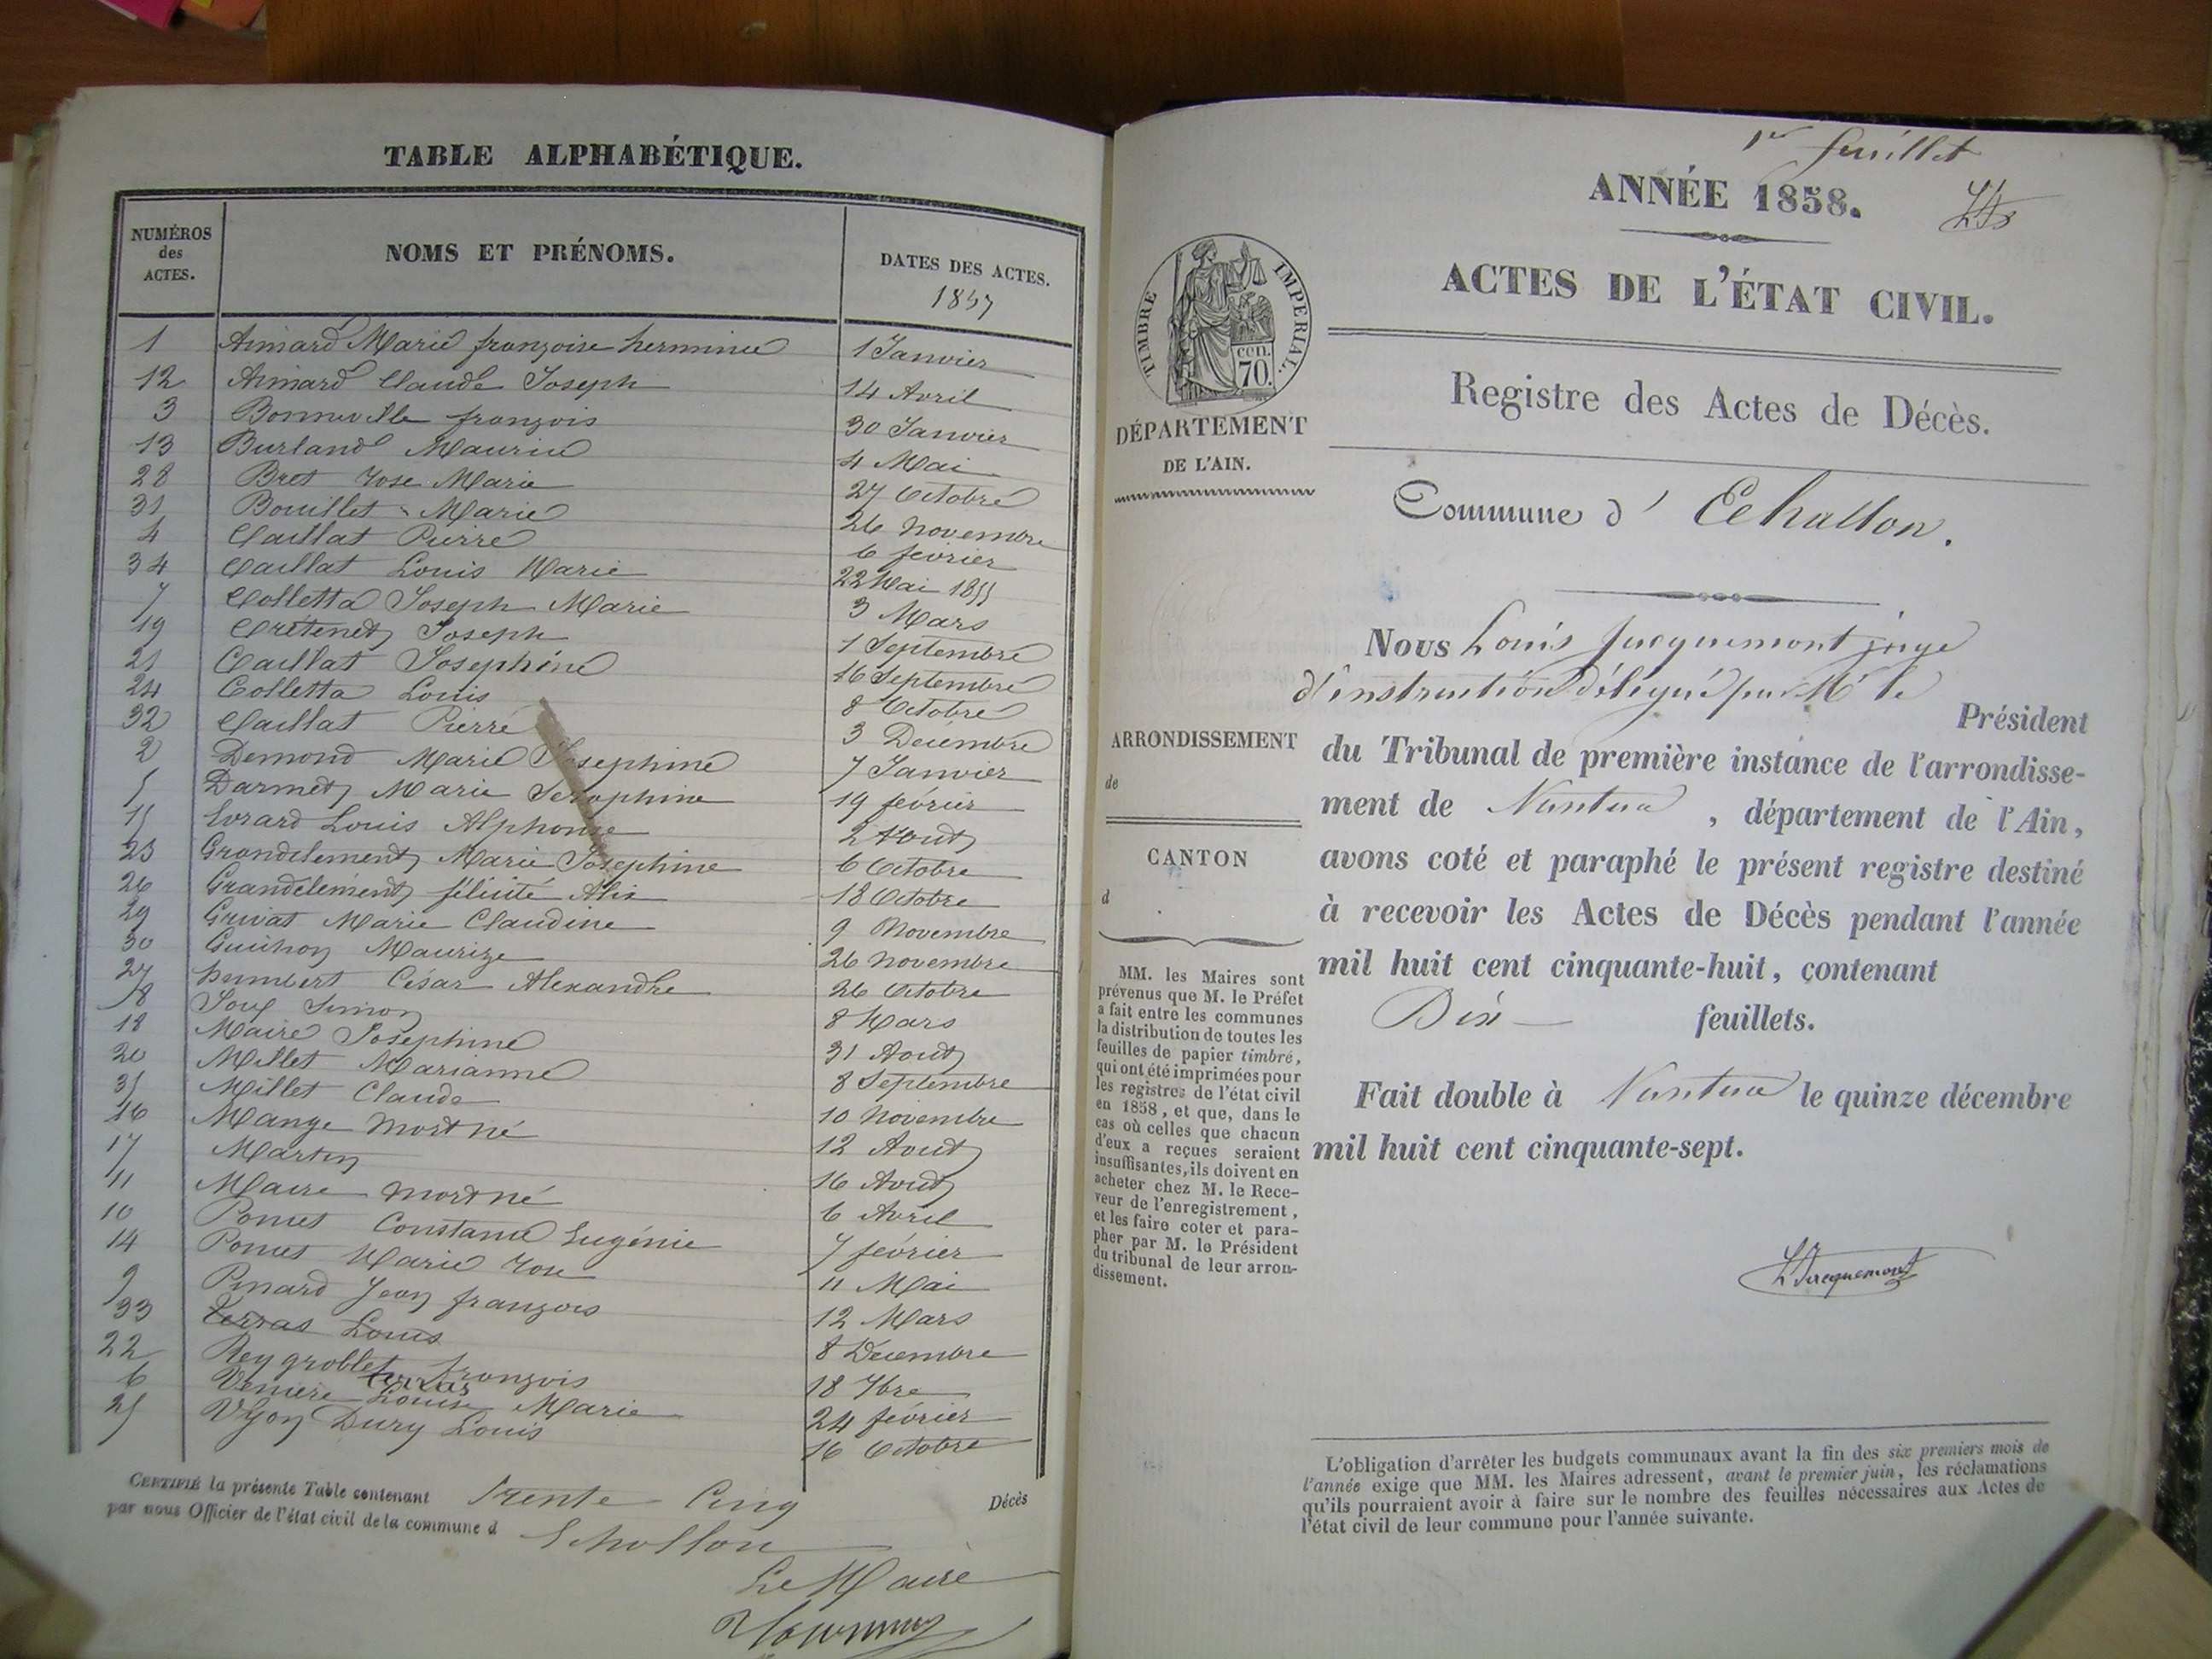 TABLE ALPHABÉTIQUE.
NUMÉROS
des
ACTES.
NOMS ET PRÉNOMS.
DATES DES ACTES.
1857
1 Aimard Marie françoise herminie 1 Janvier
12 Aimard Claude Joseph 14 Avril
3 Bonneville françois 30 Janvier
13 Burland Maurice 4 Mai
28 Bret rose Marie 27 Octobre
31 Bouillet Marie 26 Novembre
4 Caillat Pierre 6 février
34 Caillat Louis Marie 22 Mai 1855
7 Colletta Joseph Marie 3 Mars
19 Crétenet Joseph 1 Septembre
21 Caillat Josephine 16 Septembre
24 Colletta Louis 8 Octobre
32 Caillat Pierre 3 Decembre
2 Demond Marie Josephine 7 Janvier
5 Darmet Marie Seraphine 19 février
15 Evrard Louis Alphonse 2 Aout
23 Grandclement Marie Josephine 6 Octobre
26 Grandclement félicité Alix 18 Octobre
29 Grivat Marie Claudine 9 Novembre
30 Guichon Maurize 26 Novembre
27 humbert César Alexandre 26 Octobre
8 Simon 8 Mars
18 Maire Josephine 31 Aout
20 Millet Marianne 8 Septembre
35 Millet Claude 10 Novembre
16 Mange mort né 12 Aout
17 Martin 16 Aout
11 Maire mort né 6 Avril
10 Poncet Constance Eugénie 7 février
14 Poncet Marie rose 11 Mai
9 Pinard Jean françois 12 Mars
33 terras Louis 8 Decembre
22 Rey grobellet françois 18 7bre
terras
6 Veniere Louise Marie 24 février
25 Dury Louis 16 Octobre
CERTIFIÉ la présente Table contenant Trente Cinq Décès
par nous Officier de l'état civil de la commune d Echallon
Le Maire
1er feuillet
ANNÉE 1858.
ACTES DE L'ÉTAT CIVIL.
TIMBRE IMPERIAL.
cen.
70.
DÉPARTEMENT
DE L'AIN.
Registre des Actes de Décès.
Commune d' Echallon.
Nous Louis Jacquemont juge
d'instruction délégué par Mr le
Président
ARRONDISSEMENT
de
du Tribunal de première instance de l'arrondisse-
ment de Nantua , département de l'Ain,
avons coté et paraphé le présent registre destiné
à recevoir les Actes de Décès pendant l'année
mil huit cent cinquante-huit, contenant
Dix feuillets.
Fait double à Nantua le quinze décembre
mil huit cent cinquante-sept.
LJacquemont
CANTON
d
MM. les Maires sont
prévenus que M. le Préfet
a fait entre les communes
la distribution de toutes les
feuilles de papier timbré,
qui ont été imprimées pour
les registres de l'état civil
en 1858, et que, dans le
cas où celles que chacun
d'eux a reçues seraient
insuffisantes, ils doivent en
acheter chez M. le Rece-
veur de l'enregistrement,
et les faire coter et para-
pher par M. le Président
du tribunal de leur arron-
dissement.
L'obligation d'arrêter les budgets communaux avant la fin des six premiers mois de
l'année exige que MM. les Maires adressent, avant le premier juin, les réclamations
qu'ils pourraient avoir à faire sur le nombre des feuilles nécessaires aux Actes de
l'état civil de leur commune pour l'année suivante.